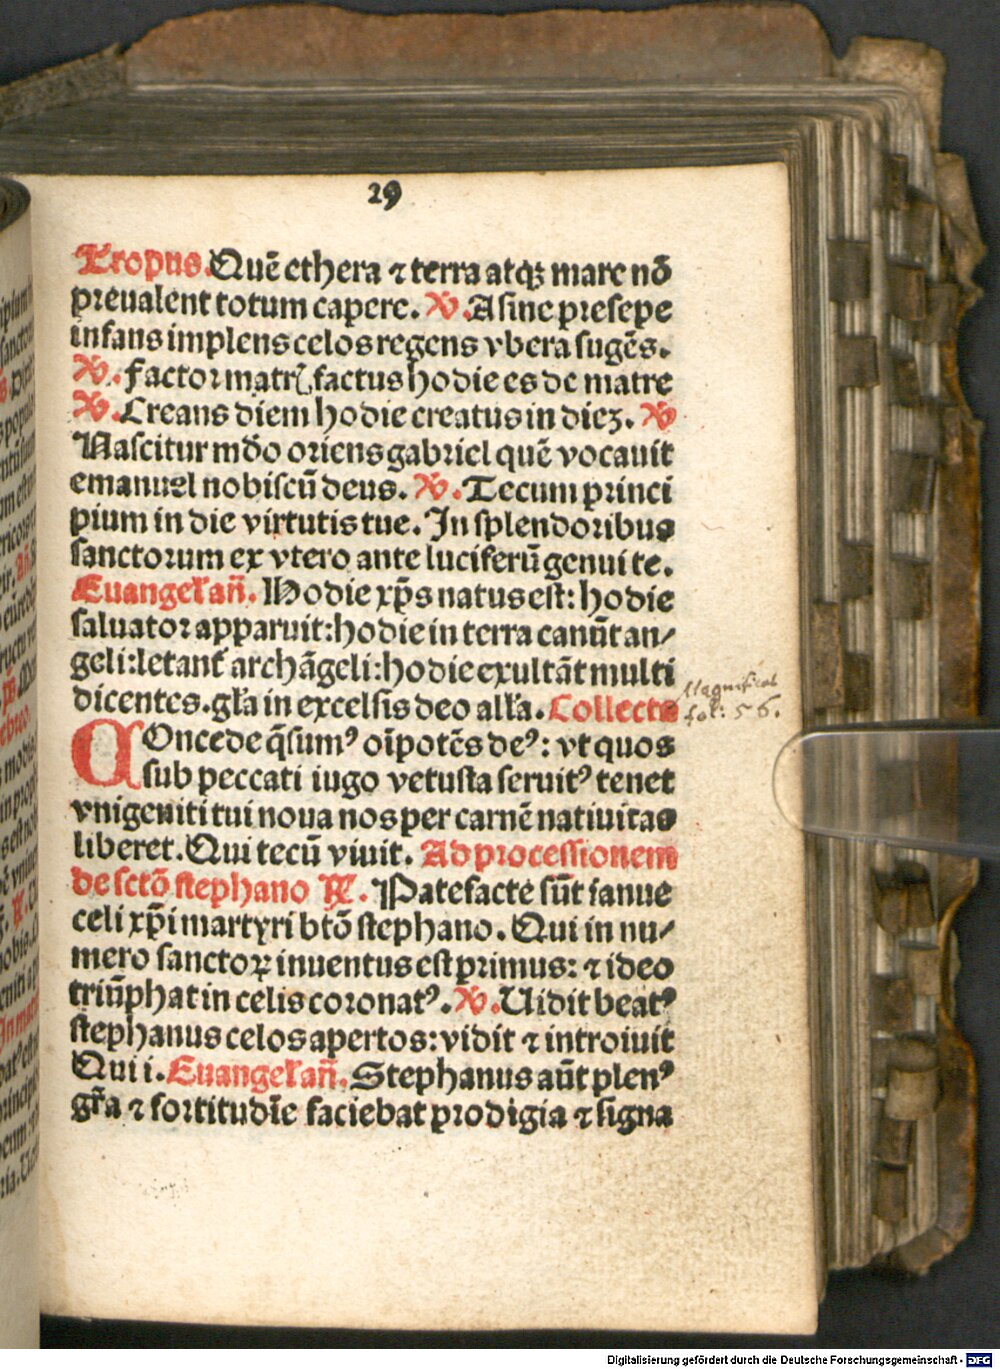 29
Tropus. Quē ethera ⁊ terra atqꝫ mare nō
preualent totum capere. ℣. Asine presepe
infans implens celos regens vbera sugēs.
℣. Factor matrꝭ, factus hodie es de matre
℣. Creans diem hodie creatus in dieꝫ. ℣
Nascitur mūdo oriens gabriel quē vocauit
emanuel nobiscū deus. ℣. Tecum princi
pium in die virtutis tue. In splendoribus
sanctorum ex vtero ante luciferū genui te.
Euangeł añ. Hodie xp̄s natus est: hodie
saluator apparuit: hodie in terra canūt an/
geli: letant᷑ archāgeli: hodie exultāt multi
dicentes. gła in excelsis deo ałła. Collecta
COncede q̄sumꝰ oīpotēs deꝰ: vt quos
sub peccati iugo vetusta seruitꝰ tenet
vnigeniti tui noua nos per carnē natiuitas
liberet. Qui tecū viuit. Ad processionem
de sctō stephano ℟. Patefacte sūt ianue
celi xp̄i martyri btō stephano. Qui in nu/
mero sanctoꝝ inuentus est primus: ⁊ ideo
triūphat in celis coronatꝰ. ℣. Uidit beatꝰ
stephanus celos apertos: vidit ⁊ introiuit
Qui i. Euangeł añ. Stephanus aūt plenꝰ
gr̄a ⁊ fortitudīe faciebat prodigia ⁊ signa
Magnificat
fol: 56.
Digitalisierung gefördert durch die Deutsche Forschungsgemeinschaft - DFG